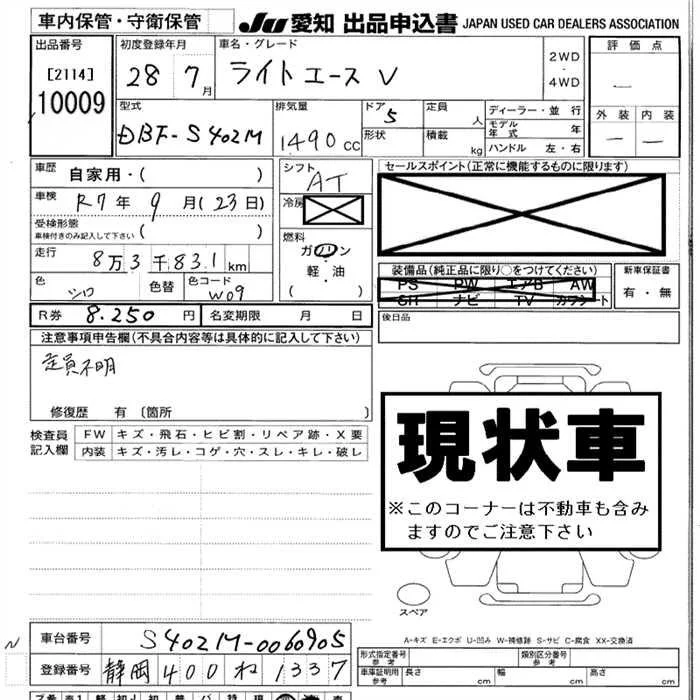 車内保管・守衛保管
JU 愛知 出品申込書 JAPAN USED CAR DEALERS ASSOCIATION
出品番号
[2114]
10009
初度登録年月
28 7月
車名・グレード
ライトエース V
2WD
・
4WD
評価点
—
型式
DBF-S402M
排気量
1490cc
ドア
5
形状
定員
人
積載
kg
ディーラー・並行
モデル年式 年
ハンドル 左・右
外装 内装
— —
車歴 自家用・( )
車検 R7年 9月(23日)
受検形態
車検付きのみ記入して下さい ( )
走行 8万3千831km
色 シロ
色替
色コード
W09
シフト
AT
冷房
燃料
ガソリン
・
軽・油
( )
セールスポイント(正常に機能するものに限ります)
装備品(純正品に限り○をつけてください)
PS PW エアB AW
SH ナビ TV カワシート
新車保証書
有・無
R券 8.250円
名変期限 月 日
後日品
注意事項申告欄(不具合内容等は具体的に記入して下さい)
定員不明
修復歴 有 〔箇所 〕
検査員記入欄
FW キズ・飛石・ヒビ割・リペア跡・X要
内装 キズ・汚レ・コゲ・穴・スレ・キレ・破レ
現状車
※このコーナーは不動車も含み
ますのでご注意下さい
スペア
A-キズ E-エクボ U-凹み W-補修跡 S-サビ C-腐食 XX-交換済
車台番号 S402M-0060905
登録番号 静岡 400 ね 1337
形式指定番号
参考
類別区分番号
参考
車庫証明用
参考
長さ cm
幅 cm
高さ cm